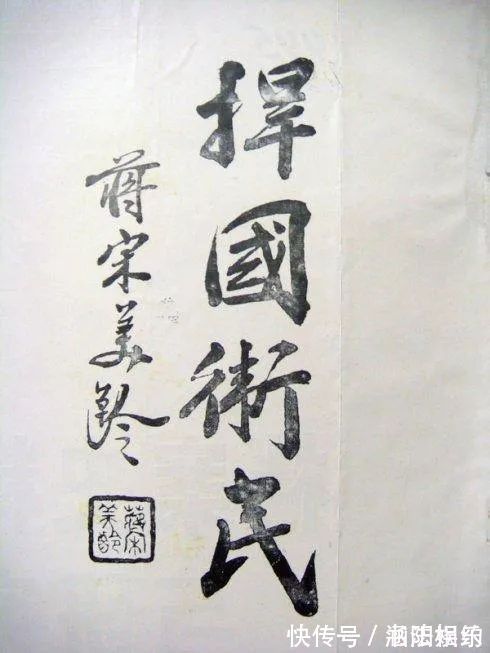 捍國衛民
蔣宋美齡
蔣宋
美齡
快传号 /